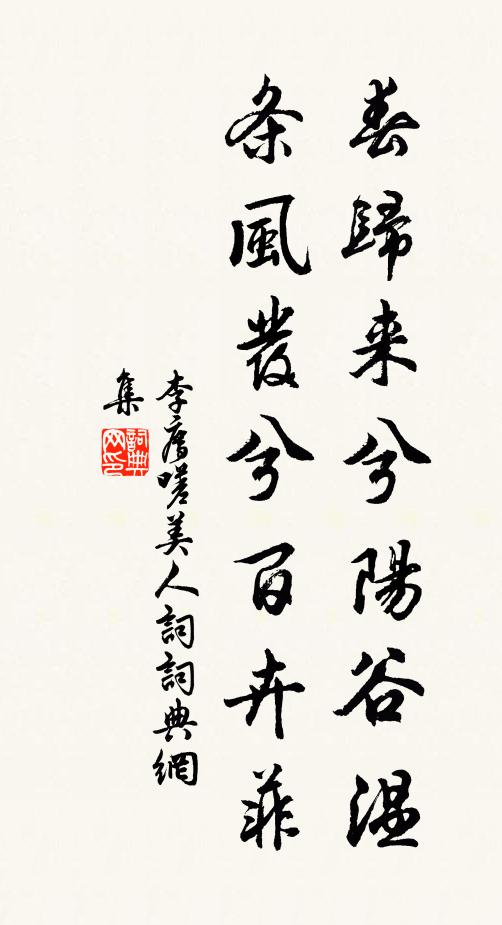 春歸来兮陽谷温
条風發兮百卉菲
李廌嗟美人詞詞典網
集
詞典
网印